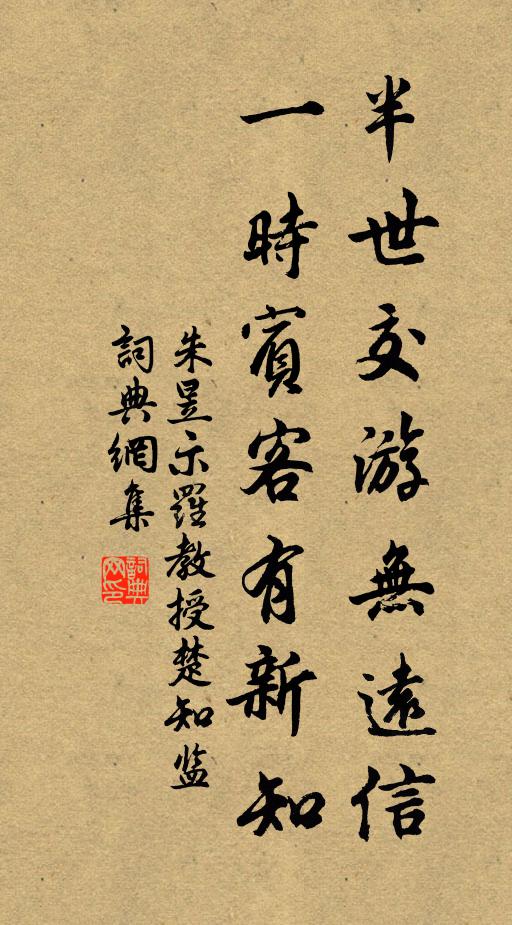 半世交游無遠信
一時賓客有新知
朱昱示羅教授楚知監
詞典網集
詞典网印